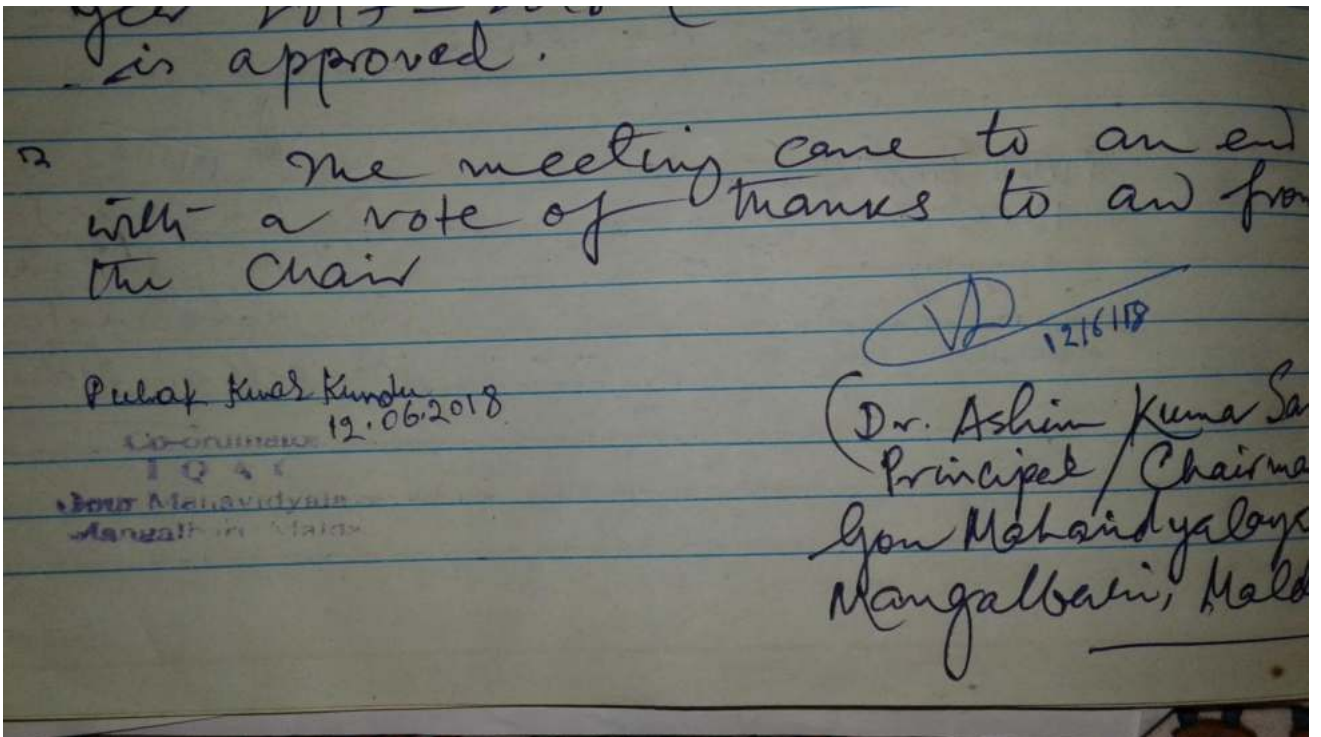 is approved.
The meeting came to an end
with a vote of thanks to all from
the Chair
12/6/18
Pulak Kumar Kundu
12.06.2018
Co-ordinator
IQAC
Gour Mahavidyalaya
Mangalbari, Malda
(Dr. Ashim Kuma Sa
Principal / Chairma
Gour Mahavidyalaya
Mangalbari, Mald